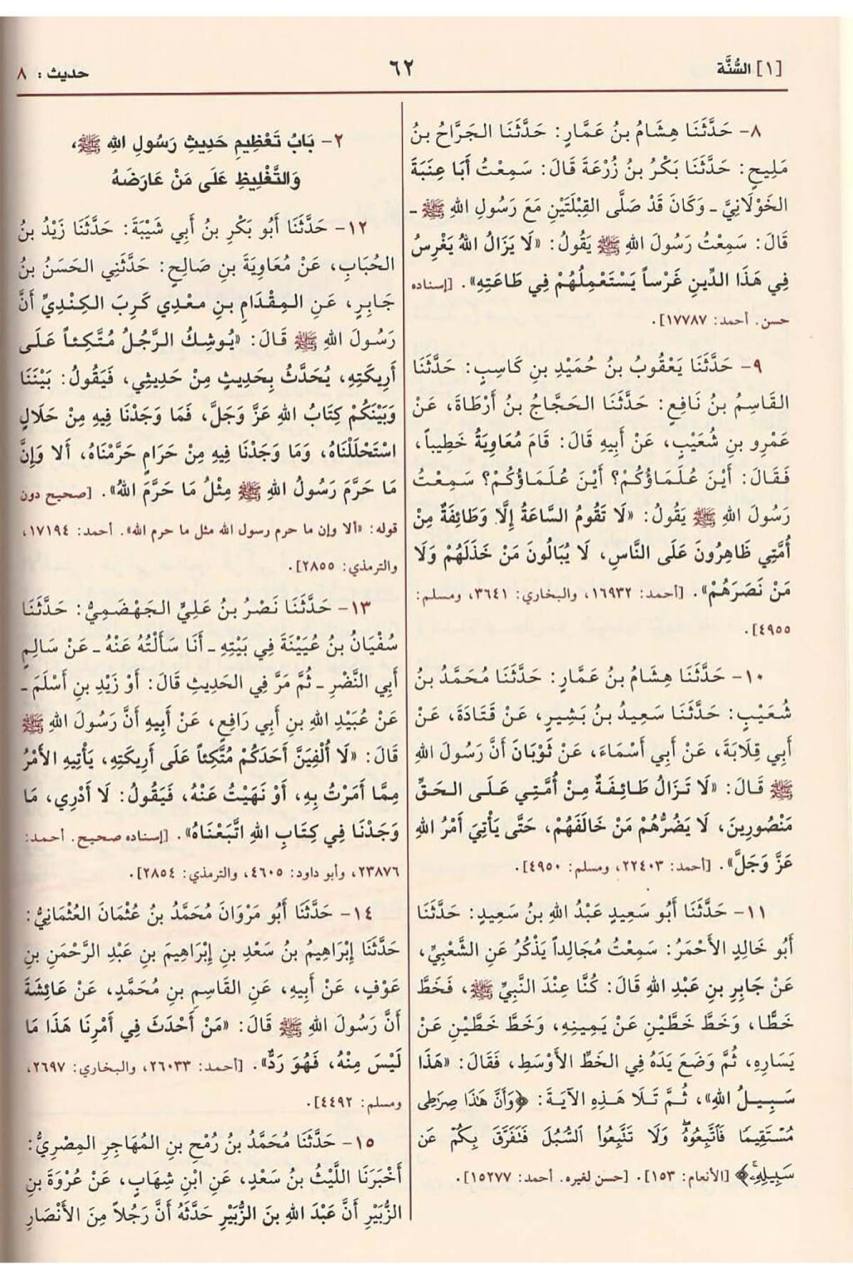 [١] السُّنَّة
٦٢
حديث : ٨
٨- حَدَّثَنَا هِشَامُ بنُ عَمَّارٍ: حَدَّثَنَا الجَرَّاحُ بنُ
مَلِيحٍ: حَدَّثَنَا بَكْرُ بنُ زُرْعَةَ قَالَ: سَمِعْتُ أَبَا عِنَبَةَ
الخَوْلَانِيَّ ـ وَكَانَ قَدْ صَلَّى القِبْلَتَيْنِ مَعَ رَسُولِ اللهِ ﷺ ـ
قَالَ: سَمِعْتُ رَسُولَ اللهِ ﷺ يَقُولُ: «لَا يَزَالُ اللهُ يَغْرِسُ
فِي هَذَا الدِّينِ غَرْساً يَسْتَعْمِلُهُمْ فِي طَاعَتِهِ». [إسناده
حسن. أحمد: ١٧٧٨٧].
٩- حَدَّثَنَا يَعْقُوبُ بنُ حُمَيْدِ بنِ كَاسِبٍ: حَدَّثَنَا
القَاسِمُ بنُ نَافِعٍ: حَدَّثَنَا الحَجَّاجُ بنُ أَرْطَاةَ، عَنْ
عَمْرِو بنِ شُعَيْبٍ، عَنْ أَبِيهِ قَالَ: قَامَ مُعَاوِيَةُ خَطِيباً،
فَقَالَ: أَيْنَ عُلَمَاؤُكُمْ؟ أَيْنَ عُلَمَاؤُكُمْ؟ سَمِعْتُ
رَسُولَ اللهِ ﷺ يَقُولُ: «لَا تَقُومُ السَّاعَةُ إِلَّا وَطَائِفَةٌ مِنْ
أُمَّتِي ظَاهِرُونَ عَلَى النَّاسِ، لَا يُبَالُونَ مَنْ خَذَلَهُمْ وَلَا
مَنْ نَصَرَهُمْ». [أحمد: ١٦٩٣٢، والبخاري: ٣٦٤١، ومسلم:
٤٩٥٥].
١٠- حَدَّثَنَا هِشَامُ بنُ عَمَّارٍ: حَدَّثَنَا مُحَمَّدُ بنُ
شُعَيْبٍ: حَدَّثَنَا سَعِيدُ بنُ بَشِيرٍ، عَنْ قَتَادَةَ، عَنْ
أَبِي قِلَابَةَ، عَنْ أَبِي أَسْمَاءَ، عَنْ ثَوْبَانَ أَنَّ رَسُولَ اللهِ
ﷺ قَالَ: «لَا تَزَالُ طَائِفَةٌ مِنْ أُمَّتِي عَلَى الحَقِّ
مَنْصُورِينَ، لَا يَضُرُّهُمْ مَنْ خَالَفَهُمْ، حَتَّى يَأْتِيَ أَمْرُ اللهِ
عَزَّ وَجَلَّ». [أحمد: ٢٢٤٠٣، ومسلم: ٤٩٥٠].
١١- حَدَّثَنَا أَبُو سَعِيدٍ عَبْدُ اللهِ بنُ سَعِيدٍ: حَدَّثَنَا
أَبُو خَالِدٍ الأَحْمَرُ: سَمِعْتُ مُجَالِداً يَذْكُرُ عَنِ الشَّعْبِيِّ،
عَنْ جَابِرِ بنِ عَبْدِ اللهِ قَالَ: كُنَّا عِنْدَ النَّبِيِّ ﷺ، فَخَطَّ
خَطًّا، وَخَطَّ خَطَّيْنِ عَنْ يَمِينِهِ، وَخَطَّ خَطَّيْنِ عَنْ
يَسَارِهِ، ثُمَّ وَضَعَ يَدَهُ فِي الخَطِّ الأَوْسَطِ، فَقَالَ: «هَذَا
سَبِيلُ اللهِ»، ثُمَّ تَلَا هَذِهِ الآيَةَ: ﴿وَأَنَّ هَٰذَا صِرَٰطِي
مُسْتَقِيمًا فَٱتَّبِعُوهُ وَلَا تَتَّبِعُوا۟ ٱلسُّبُلَ فَتَفَرَّقَ بِكُمْ عَن
سَبِيلِهِۦ﴾ [الأنعام: ١٥٣]. [حسن لغيره. أحمد: ١٥٢٧٧].
٢- بَابُ تَعْظِيمِ حَدِيثِ رَسُولِ اللهِ ﷺ،
وَالتَّغْلِيظِ عَلَى مَنْ عَارَضَهُ
١٢- حَدَّثَنَا أَبُو بَكْرِ بنُ أَبِي شَيْبَةَ: حَدَّثَنَا زَيْدُ بنُ
الحُبَابِ، عَنْ مُعَاوِيَةَ بنِ صَالِحٍ: حَدَّثَنِي الحَسَنُ بنُ
جَابِرٍ، عَنِ المِقْدَامِ بنِ مَعْدِي كَرِبَ الكِنْدِيِّ أَنَّ
رَسُولَ اللهِ ﷺ قَالَ: «يُوشِكُ الرَّجُلُ مُتَّكِئاً عَلَى
أَرِيكَتِهِ، يُحَدَّثُ بِحَدِيثٍ مِنْ حَدِيثِي، فَيَقُولُ: بَيْنَنَا
وَبَيْنَكُمْ كِتَابُ اللهِ عَزَّ وَجَلَّ، فَمَا وَجَدْنَا فِيهِ مِنْ حَلَالٍ
اسْتَحْلَلْنَاهُ، وَمَا وَجَدْنَا فِيهِ مِنْ حَرَامٍ حَرَّمْنَاهُ، أَلَا وَإِنَّ
مَا حَرَّمَ رَسُولُ اللهِ ﷺ مِثْلُ مَا حَرَّمَ اللهُ». [صحيح دون
قوله: «ألا وإن ما حرم رسول الله مثل ما حرم الله». أحمد: ١٧١٩٤،
والترمذي: ٢٨٥٥].
١٣- حَدَّثَنَا نَصْرُ بنُ عَلِيٍّ الجَهْضَمِيُّ: حَدَّثَنَا
سُفْيَانُ بنُ عُيَيْنَةَ فِي بَيْتِهِ ـ أَنَا سَأَلْتُهُ عَنْهُ ـ عَنْ سَالِمٍ
أَبِي النَّضْرِ ـ ثُمَّ مَرَّ فِي الحَدِيثِ قَالَ: أَوْ زَيْدِ بنِ أَسْلَمَ ـ
عَنْ عُبَيْدِ اللهِ بنِ أَبِي رَافِعٍ، عَنْ أَبِيهِ أَنَّ رَسُولَ اللهِ ﷺ
قَالَ: «لَا أُلْفِيَنَّ أَحَدَكُمْ مُتَّكِئاً عَلَى أَرِيكَتِهِ، يَأْتِيهِ الأَمْرُ
مِمَّا أَمَرْتُ بِهِ، أَوْ نَهَيْتُ عَنْهُ، فَيَقُولُ: لَا أَدْرِي، مَا
وَجَدْنَا فِي كِتَابِ اللهِ اتَّبَعْنَاهُ». [إسناده صحيح. أحمد:
٢٣٨٧٦، وأبو داود: ٤٦٠٥، والترمذي: ٢٨٥٤].
١٤- حَدَّثَنَا أَبُو مَرْوَانَ مُحَمَّدُ بنُ عُثْمَانَ العُثْمَانِيُّ:
حَدَّثَنَا إِبْرَاهِيمُ بنُ سَعْدِ بنِ إِبْرَاهِيمَ بنِ عَبْدِ الرَّحْمَنِ بنِ
عَوْفٍ، عَنْ أَبِيهِ، عَنِ القَاسِمِ بنِ مُحَمَّدٍ، عَنْ عَائِشَةَ
أَنَّ رَسُولَ اللهِ ﷺ قَالَ: «مَنْ أَحْدَثَ فِي أَمْرِنَا هَذَا مَا
لَيْسَ مِنْهُ، فَهُوَ رَدٌّ». [أحمد: ٢٦٠٣٣، والبخاري: ٢٦٩٧،
ومسلم: ٤٤٩٢].
١٥- حَدَّثَنَا مُحَمَّدُ بنُ رُمْحِ بنِ المُهَاجِرِ المِصْرِيُّ:
أَخْبَرَنَا اللَّيْثُ بنُ سَعْدٍ، عَنِ ابْنِ شِهَابٍ، عَنْ عُرْوَةَ بنِ
الزُّبَيْرِ أَنَّ عَبْدَ اللهِ بنَ الزُّبَيْرِ حَدَّثَهُ أَنَّ رَجُلاً مِنَ الأَنْصَارِ